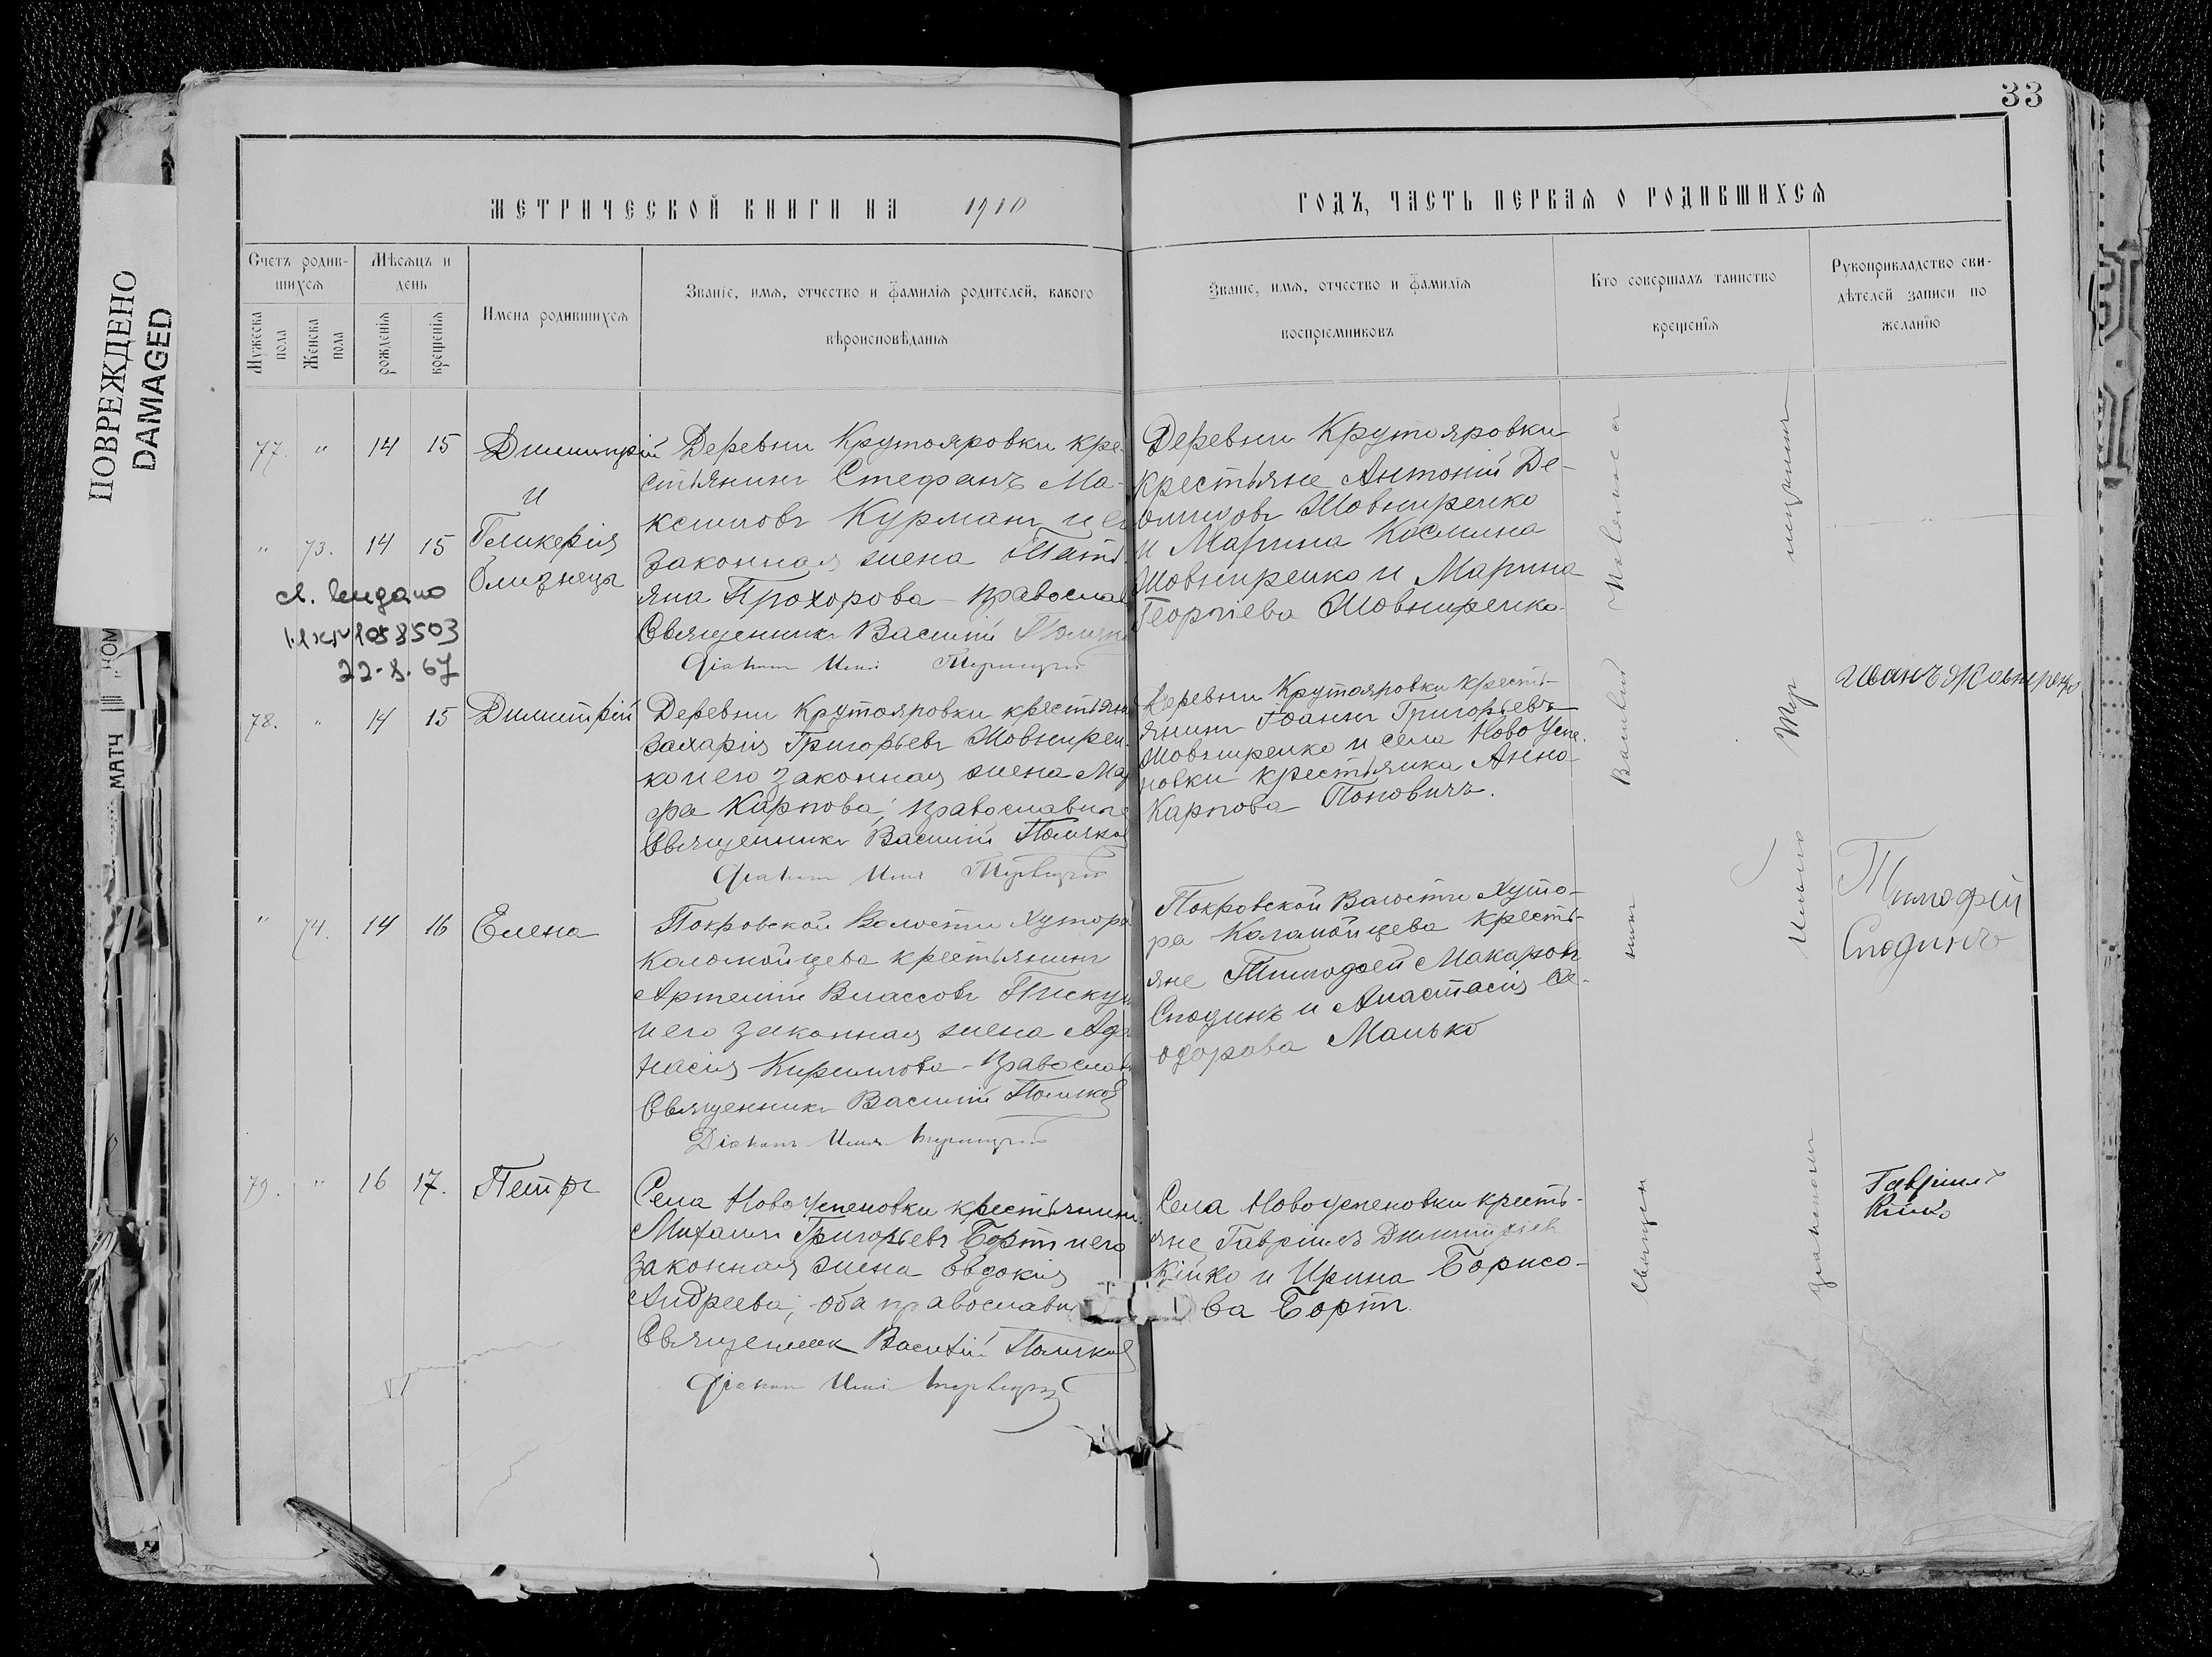 33
ПОВРЕЖДЕНО
DAMAGED
МЕТРИЧЕСКОЙ КНИГИ НА 1910
ГОДЪ, ЧАСТЬ ПЕРВАЯ О РОДИВШИХСЯ
Счетъ родив-
шихся
Мужеска пола
Женска пола
Мѣсяцъ и
день
рожденія
крещенія
Имена родившихся
Званіе, имя, отчество и фамилія родителей, какого
вѣроисповѣданія
Званіе, имя, отчество и фамилія
воспріемниковъ
Кто совершалъ таинство
крещенія
Рукоприкладство сви-
дѣтелей записи по
желанію
77. " 14 15 Димитрій
и
" 73. 14 15 Гликерія
близнецы
22-8.67
Деревни Крутояровки кре-
стьянинъ Стефанъ Ма-
ксимовъ Курманъ и ег
законная жена Тать
яна Прохорова - православ
Священникъ Василій
Діаконъ Илія
Деревни Крутояровки
крестьяне Антоній Де-
Жовниренко
и Марина Космина
Жовниренко и Марина
Георгіева Жовниренко
78. " 14 15 Димитрій
Деревни Крутояровки крестьян
Захарія Григорьевъ Жовнирен-
ко и его законная жена Мар
фа Карпова, православные
Священникъ Василій
Діаконъ Илія
Деревни Крутояровки кресть-
янинъ Іоаннъ Григорьевъ
Жовниренко и села НовоУспе-
новки крестьянка Анна
Карпова Поповичъ.
Иванъ Жовниренко
" 74. 14 16 Елена
Покровской Волости Хутора
Коломойцева крестьянинъ
Артемій Власовъ Пискун
и его законная жена
Кириллова - православ
Священникъ Василій
Діаконъ Илія
Покровской Волости Хуто-
ра Коламойцева кресть-
яне Тимофей Макаровъ
Сподинъ и Анастасія Ѳе-
одорова Манько
Тимофей
Сподинъ
79. " 16 17. Петръ
Села НовоУспеновки крестьянинъ
Михаилъ Григорьевъ Бортъ и его
законная жена Евдокія
Андреева, оба православн
Священник Василій
Діаконъ Илія
Села Новоуспеновки кресть-
яне Гавріилъ Димитріев
Кійко и Ирина Борисо-
ва Бортъ.
Гавріилъ
Кійко
Священ
никъ
Василій
діаконом